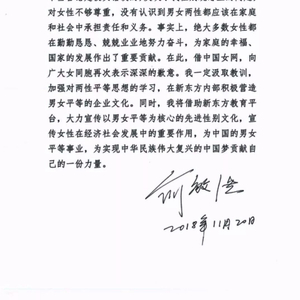 对女性不够尊重，没有认识到男女两性都应该在家庭
和社会中承担责任和义务。事实上，绝大多数女性都
在勤勤恳恳、兢兢业业地努力奋斗，为家庭的幸福、
国家的发展作出了重要贡献。在此，借中国女网，向
广大女同胞再次表示深深的歉意。我一定汲取教训，
加强对两性平等思想的学习，在新东方内部积极营造
男女平等的企业文化。同时，我将借助新东方教育平
台，大力宣传以男女平等为核心的先进性别文化，宣
传女性在经济社会发展中的重要作用，为中国的男女
平等事业，为实现中华民族伟大复兴的中国梦贡献自
己的一份力量。
俞敏洪
2018年11月20日